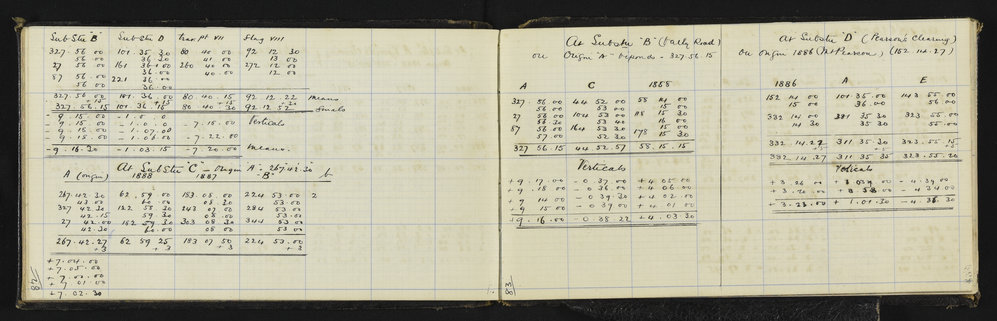 Sub Stn "B" Sub Stn D Trav. pt VII Flag VIII
327. 56. 00 101. 35. 30 80 40 00 92 12 30
56. 00 36. 30 41 00 13 00
27 56. 00 161 36. 00 260 40 272 12 00
56. 00 36. 00 40. 00 12 00
87 56. 00 221 36. 00
56. 00 36. 00
327. 56. 00 101. 36. 00 80. 40. 15 92. 12. 22 means
327. 56. 15 101 36 15 80 40 30 92. 12. 52 Finals
- 9. 15. 00 - 1. 0. 0 - 7. 15. 00 Verticals
- 9. 15. 00 - 1. 0. 0
- 9. 15. 00 - 1. 07. 00
- 9. 15. 00 - 1. 06. 00 - 7. 22. 00
- 9. 16. 30 - 1. 03. 15 - 7. 20. 00 means.
At Sub Stn "C" - Origin A. 267. 42. 30
A (origin) 1888 1887 "B"
267. 42. 30 62. 59. 00 183 08. 00 224 53. 00 2
43. 00 60. 00 08. 30 53. 00
327 42. 30 122 58. 30 243 07. 00 284 53. 00
42. 15 59. 30 08. 00 53. 00
27 42. 00 182 59. 30 303 08. 30 344 53. 00
42. 30 60. 00 08 00 53. 00
267. 42. 27 62 59 25 183 07 50 224 53. 00
+ 3 + 3 + 3 + 3
+ 7. 04. 00
+ 7. 05. 00
+ 7. 00. 00
+ 7. 01. 00
+ 7. 02. 30
82
At Substn "B" (Early Road)
on Origin "A" Beponds - 327. 56. 15
A C 1888
327. 56 00 44 52 00 58 14 00
56 00 53 00 15 00
27 56 00 104 53 00 118 15 30
56. 30 53 40 16 00
87 56 00 164 53 30 178 15 00
57. 00 52 30 15 30
327 56. 15 44. 52. 57 58. 15. 15
Verticals
+ 9. 17. 00 - 0 37. 00 + 4 05. 00
+ 9. 18. 00 - 0 36. 00 + 4 06. 00
+ 9 14 00 - 0 39. 30 + 4 02 00
+ 9 15 00 - 0 39 00 + 4 01 00
+ 9. 16. 00 - 0. 38. 22 + 4. 03. 30
83
At Substn "D" (Pearson's Clearing)
on Origin 1886 (Mt Pearson) (152 14. 27)
1886 A E
152 14 00 131. 35. 00 143 55. 00
15 00 36. 00 56 00
332 14 00 311 35 30 323. 55. 00
14 30 35 30 55. 00
332 14. 27 311. 35. 30 323. 55. 15
332 14. 27 311 35 35 323. 55. 20
Verticals
+ 3. 23. 00 + 1. 01. 30 - 4. 36. 30